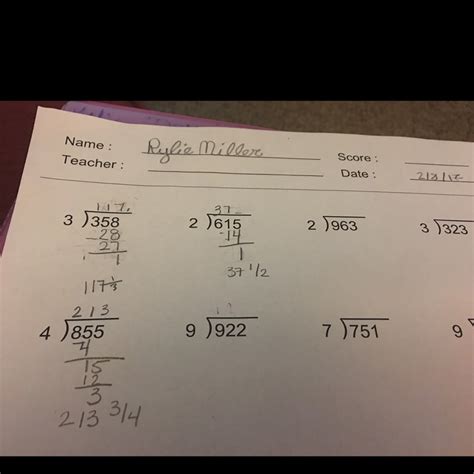 Name : Rylie Miller Score :
Teacher : Date :
3 )358 2 )615 2 )963 3 )323
37
-28 -14
27 1
1 37 1/2
117 1/3
213
4 )855 9 )922 7 )751 9
4
15
12
3
213 3/4